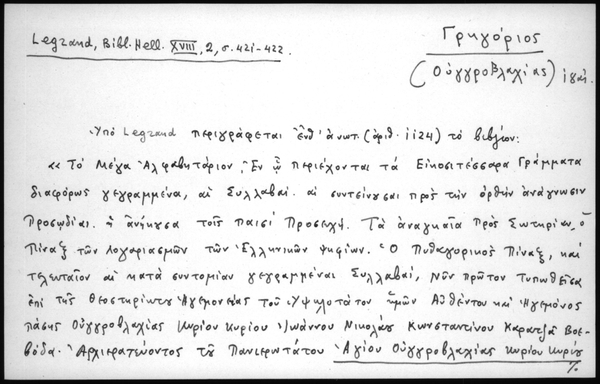 Γρηγόριος
Legrand, Bibl. Hell. XVIII, 2, σ. 421-422.
(Οὑγγροβλαχίας)
Ὑπὸ Legrand περιγράφεται ἐνθ' ἀνωτ. (ἀριθ. 1124) τὸ βιβλίον:
«Τὸ Μέγα Ἀλφαβητάριον, Ἐν ᾧ περιέχονται τὰ Εἰκοσιτέσσαρα Γράμματα
διαφόρως γεγραμμένα, αἱ Συλλαβαὶ. αἱ συντείνουσαι πρὸς τὴν ὀρθὴν ἀνάγνωσιν
Προσῳδίαι. ἡ ἀνήκουσα τοῖς παισὶ Προσευχή. Τὰ ἀναγκαῖα πρὸς Σωτηρίαν, ὁ
Πίναξ τῶν λογαριασμῶν τῶν Ἑλληνικῶν ψηφίων. Ὁ Πυθαγορικὸς Πίναξ, καὶ
τελευταῖον αἱ κατὰ συντομίαν γεγραμμέναι Συλλαβαί, Νῦν πρῶτον τυπωθεῖσα
ἐπὶ τῆς θεοστηρίκτου Ἡγεμονείας τοῦ Ὑψηλοτάτου ἡμῶν Αὐθέντου καὶ Ἡγεμόνος
πάσης Οὑγγροβλαχίας Κυρίου Κυρίου Ἰωάννου Νικολάου Κωνσταντίνου Καρατζᾶ Βοε-
βόδα. Ἀρχιερατεύοντος τοῦ Πανιερωτάτου Ἁγίου Οὑγγροβλαχίας Κυρίου Κυρίου
%